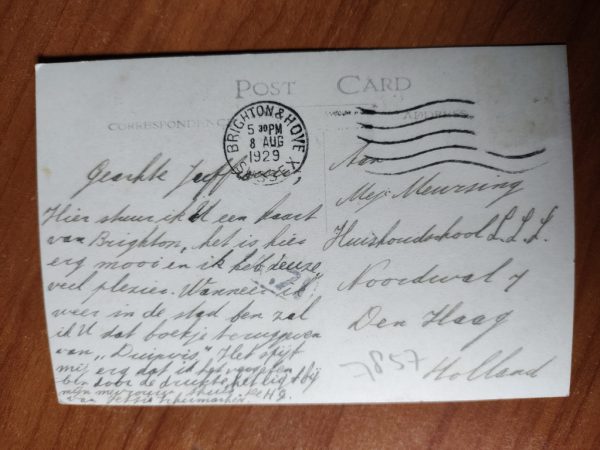 POST CARD
CORRESPONDENCE
ADDRESS
BRIGHTON & HOVE
5 30 PM
8 AUG
1929
SUSSEX
Geachte Juffrouw,
Hier stuur ik U een kaart
van Brighton, het is hier
erg mooi en ik heb deuze
veel plezier. Wanneer ik
weer in de stad ben zal
ik U dat boekje teruggeven
van „Duinvis". Het spijt
mij erg dat ik het vergeten
ben door de drukte, het ligt bij
mijn
van
Aan
Mej. Meursing
Huishoudschool L.L.L.
Noordwal 7
Den Haag
Holland
7857